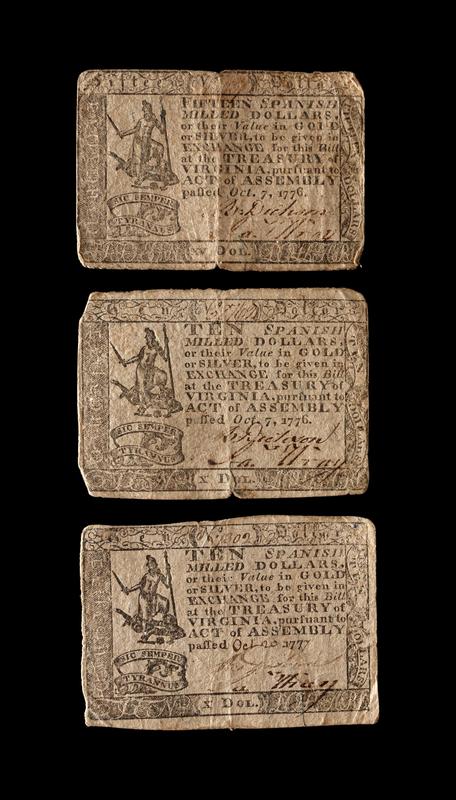 Fifteen Dollars
FIFTEEN SPANISH
MILLED DOLLARS,
or their Value in GOLD
or SILVER, to be given in
EXCHANGE for this Bill
at the TREASURY of
VIRGINIA, pursuant to
ACT of ASSEMBLY
passed Oct. 7, 1776.
SIC SEMPER
TYRANNUS
XV DOL.
Dollars
TEN SPANISH
MILLED DOLLARS,
or their Value in GOLD
or SILVER, to be given in
EXCHANGE for this Bill
at the TREASURY of
VIRGINIA, pursuant to
ACT of ASSEMBLY
passed Oct. 7, 1776.
SIC SEMPER
TYRANNUS
TEN DOLLARS
X DOL.
TEN SPANISH
MILLED DOLLARS,
or their Value in GOLD
or SILVER, to be given in
EXCHANGE for this Bill
at the TREASURY of
VIRGINIA, pursuant to
ACT of ASSEMBLY
passed Oct 20 1777
SIC SEMPER
TYRANNUS
X DOL.